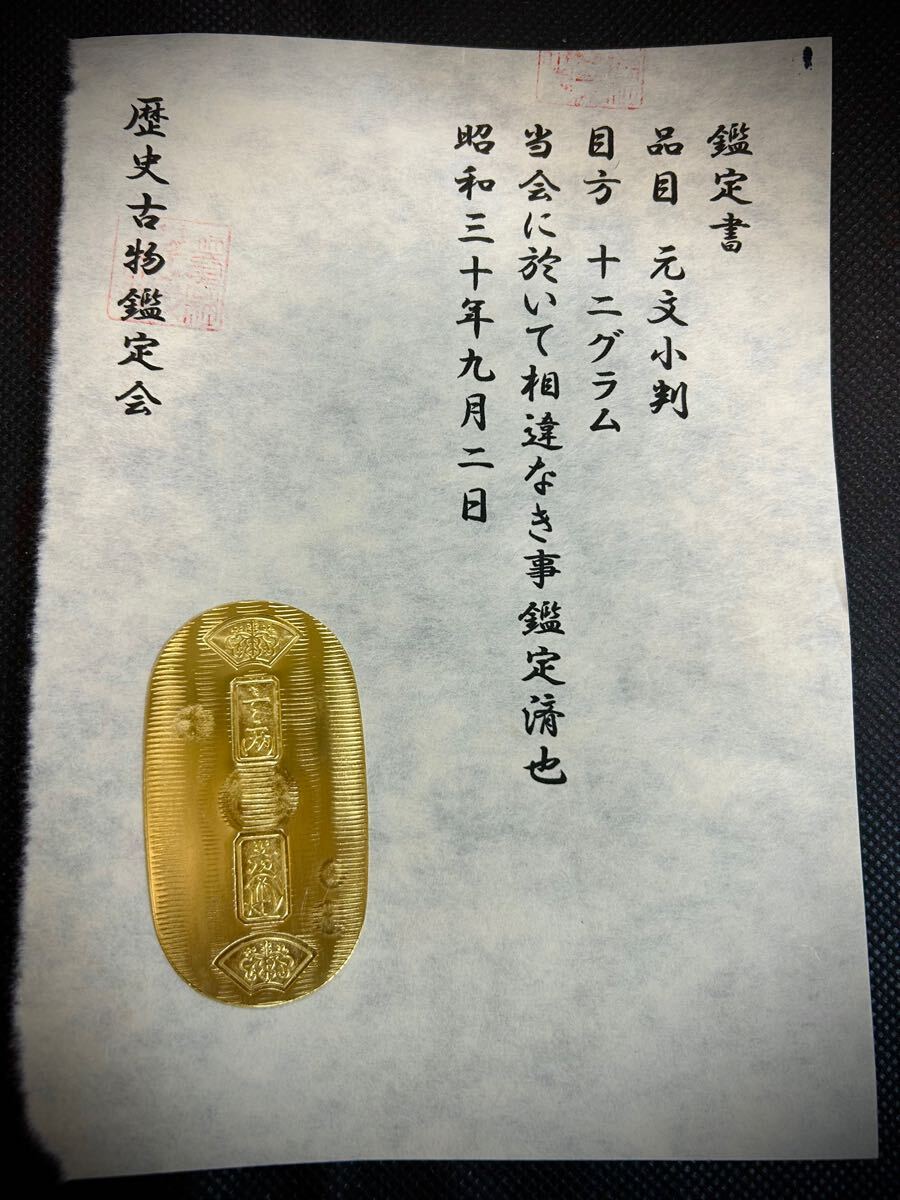 鑑定書
品目 元文小判
目方 十二グラム
当会に於いて相違なき事鑑定済也
昭和三十年九月二日
歴史古物鑑定会